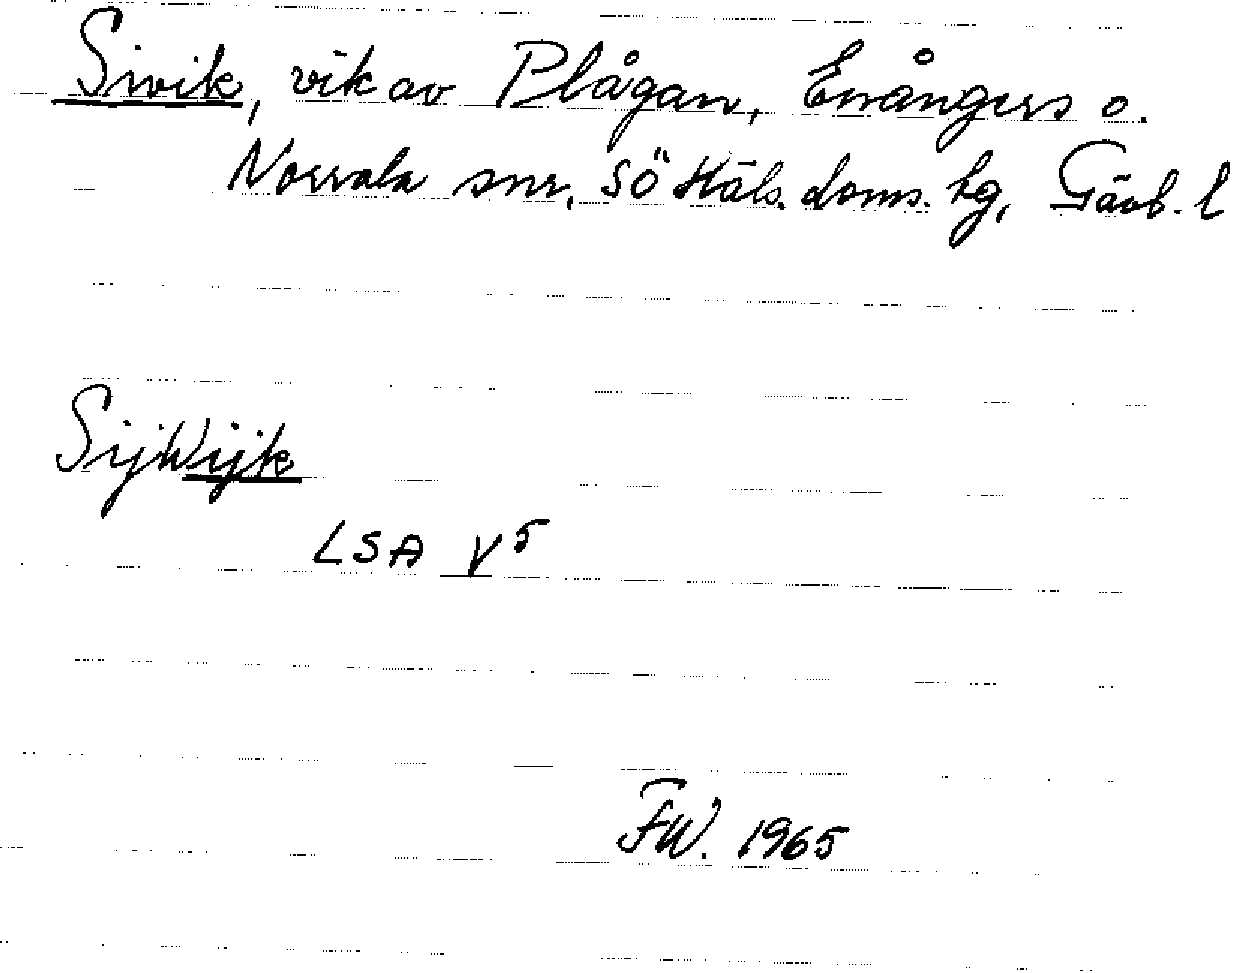 Sivik, vik av Plågan, Enångers o.
Norrala snr, SÖ Häls. doms. hg, Gävb. l
Sijwijk
LSA V5
FW. 1965